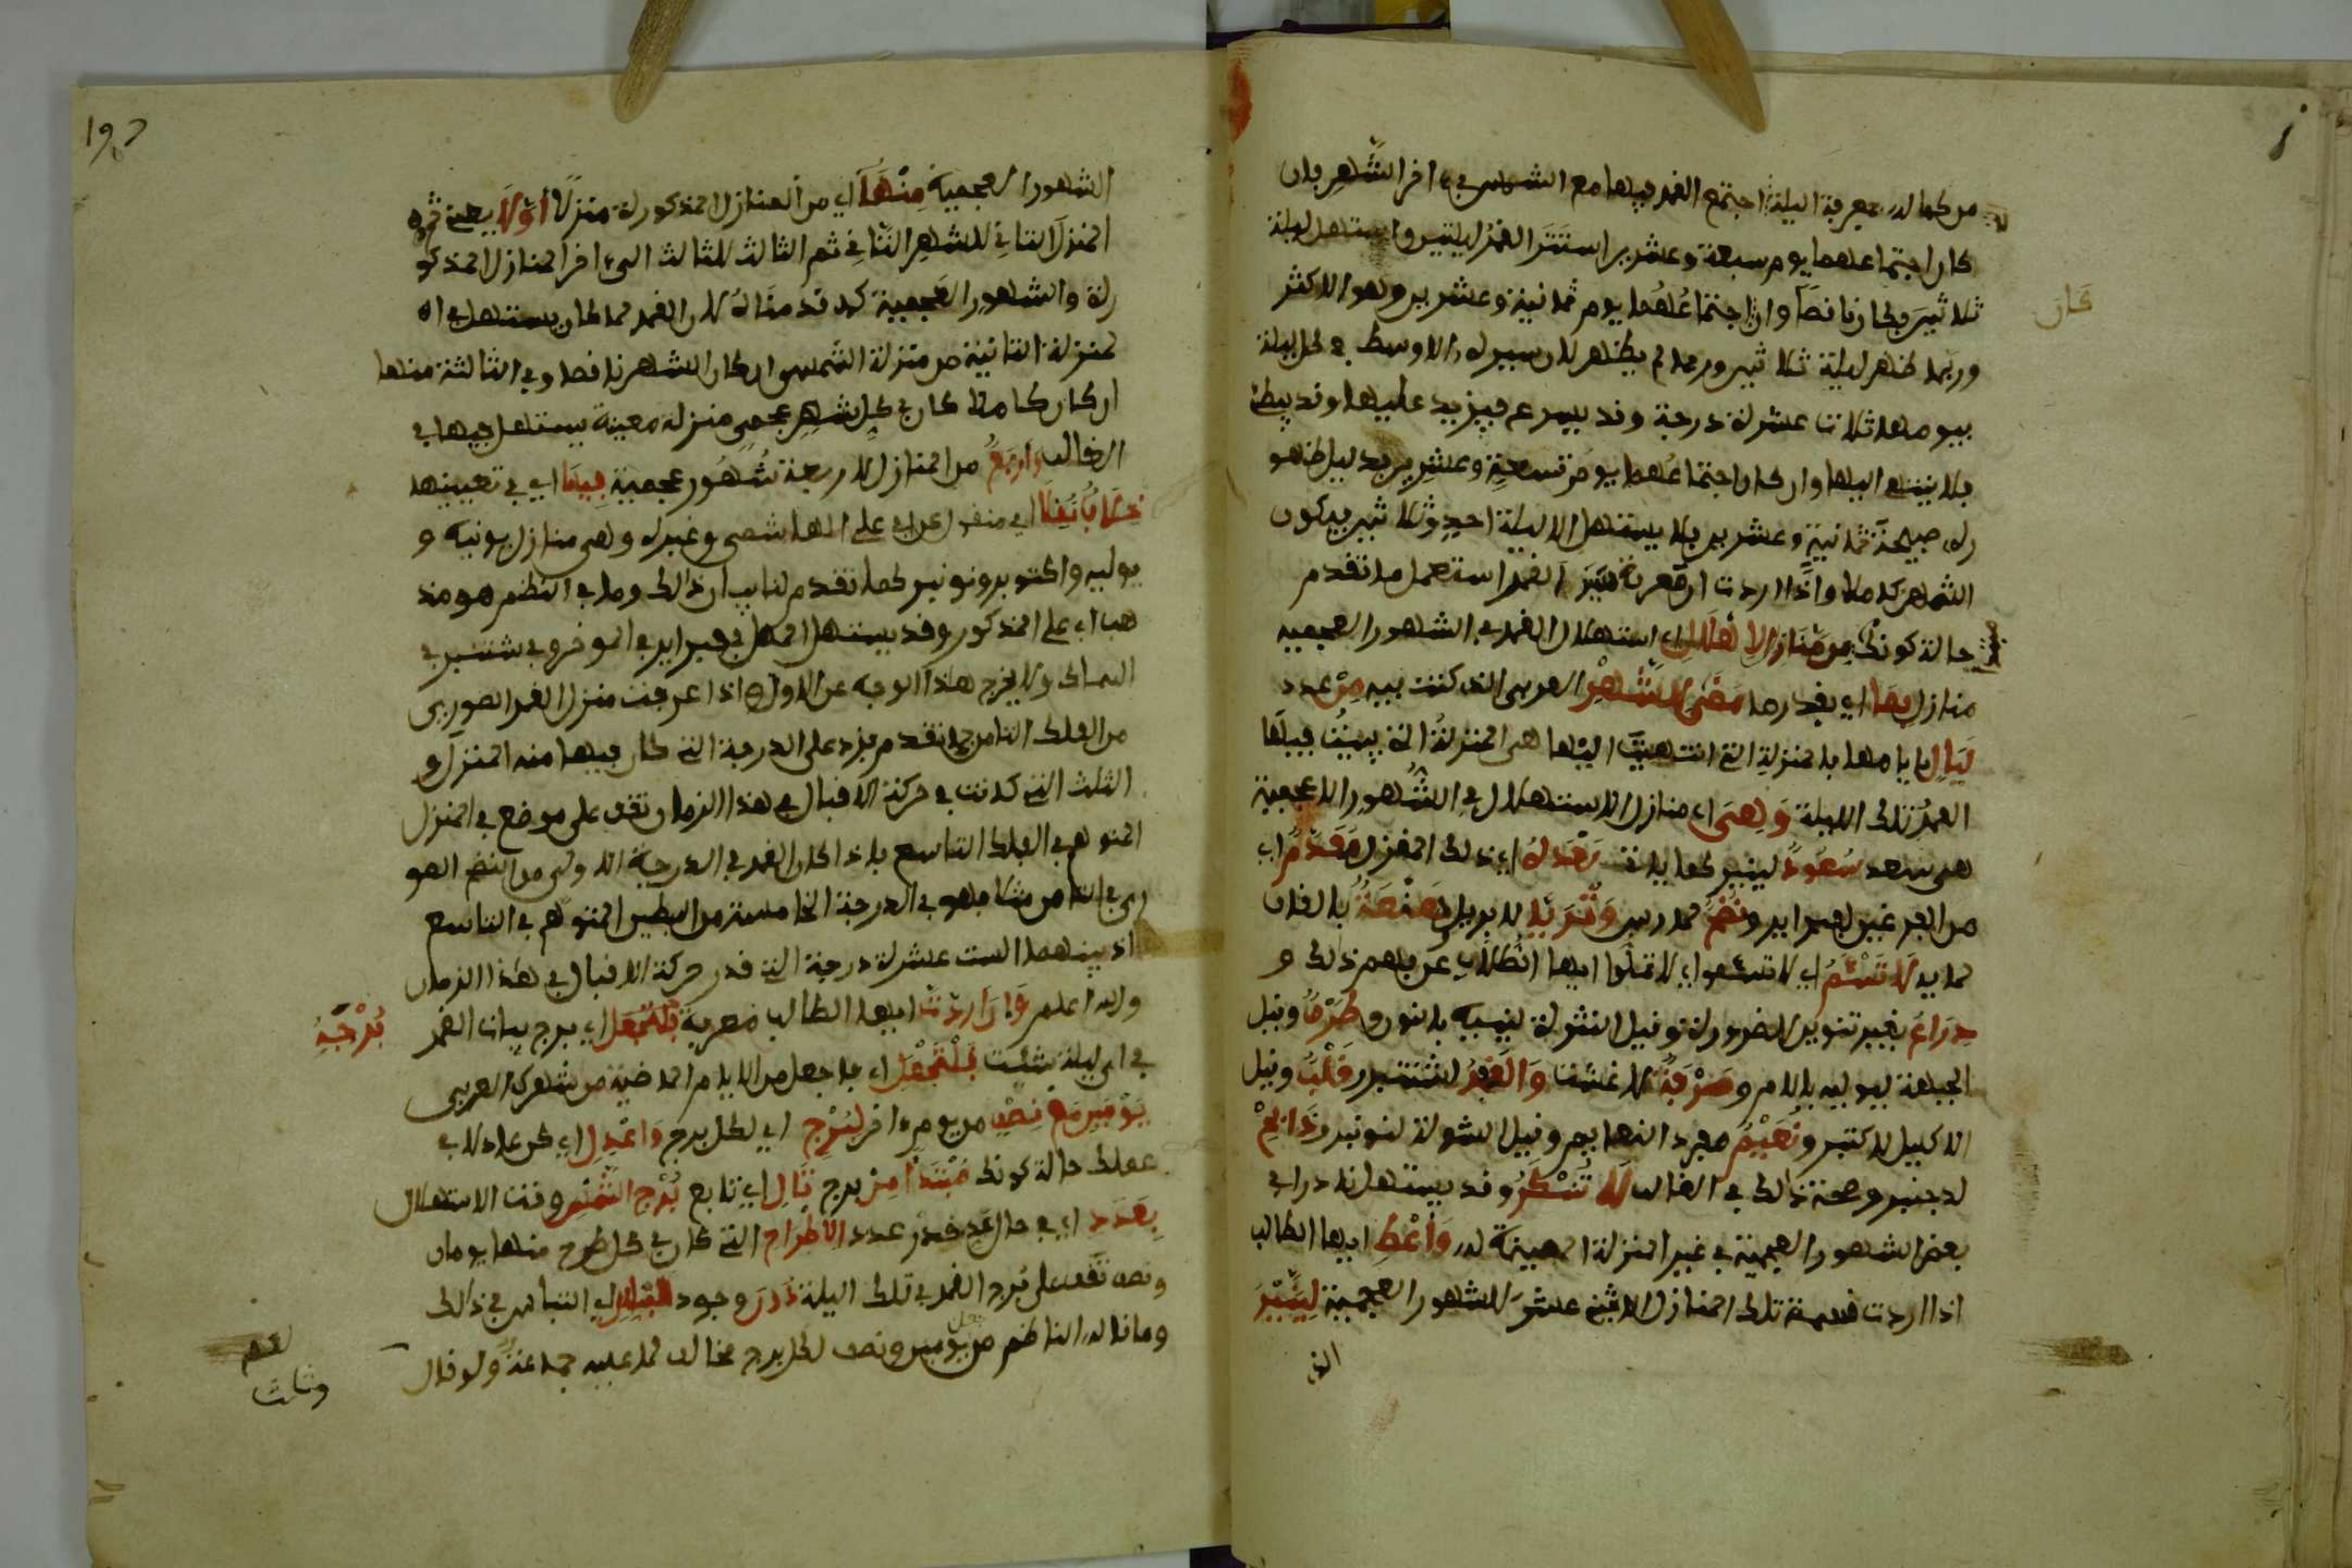 من كماله معرفة الليلة اجتمع القمر فيها مع الشمس في ءاخر الشهر فان
كان اجتماعهما يوم سبعة وعشرين استتر القمر ليلتين واستهل ليلة
ثلاثين وكان ناقصا وان اجتماعهما يوم ثمانية وعشرين وهو الاكثر
كان
وربما ظهر ليلة ثلاثين وربما لم يظهر لان سيره الاوسط في كل ليلة
بيومها ثلاث عشرة درجة وقد يسرع فيزيد عليها وقد يبطئ
فلا ينتهي اليها وان كان اجتماعهما يوم تسعة وعشرين
صبيحة ثمانية وعشرين فلا يستهل الا ليلة احد وثلاثين فيكون
الشهر كاملا واذا اردت القمر استعمل ما تقدم
حالة كونك من منازل الاهلال اي استهلال القمر في الشهور العجمية
منازل بما اي بقدر ما مضى للشهر العربي الذي كنت فيه من عدد
ليال بايامها فالمنزلة التي انتهيت اليها هي المنزلة التي يبيت فيها
القمر تلك الليلة وهي اي منازل الاستهلال في الشهور العجمية
هي سعد سعود لينير كما بلغت بعده اي ذلك المنزل مقدم اي
من الفرغين لفبراير ونطح لمارس وثريا لابريل وهقعة بالقاف
لمايه لا تسئم اي لا تسئموا اي لا تملوا ايها الطلاب عن فهم ذلك و
ذراع بغير تنوين للضرورة وقيل النثرة لينيه بالنون وطرف وقيل
الجبهة ليوليه باللام وصرفة لاغشت والغفر لشتنبر وقلب وقيل
الاكليل لاكتبر ونعيم مفرد النعايم وقيل الشولة لنونبر وذابح
لدجنبر وصحة ذلك في الغالب لا تنكر وقد يستهل نادرا في
بعض الشهور العجمية في غير المنزلة المعينة له واعط ايها الطالب
اذا اردت قسمة تلك المنازل الاثني عشر للشهور العجمية لينير
الشهور العجمية منها اي من المنازل المذكورة منزلا اولا يعني ثم
المنزل الثاني للشهر الثاني ثم الثالث للثالث الى ءاخر المنازل المذكو
رة والشهور العجمية كما قدمناه لان القمر لما كان يستهل في ا
لمنزلة الثانية من منزلة الشمس ان كان الشهر ناقصا وفي الثالثة منها
ان كان كاملا كان في كل شهر عجمي منزلة معينة يستهل فيها في
الغالب واربع من المنازل لاربعة شهور عجمية فيها اي في تعيينها
خلاف نقلا اي منقول عن ابي علي الهاشمي وغيره وهي منازل يونيه و
يوليه واكتوبر ونونبر كما تقدم لنا بيان ذلك وما في النظم هو مذ
هب ابي علي المذكور وقد يستهل الهلال في فبراير في الموخر وفي شتنبر في
السماك ولا يخرج هذا الوجه عن الاول واذا عرفت منزل القمر الصوري
من الفلك الثامن بما تقدم فزد على الدرجة التي كان فيها منه المنزل و
الثلث التي كانت في حركة الاقبال في هذا الزمان تقف على موضع في المنزل
المتوهم في الفلك التاسع فاذا كان القمر في الدرجة الاولى من النطح الصو
ري في الثامن مثلا فهو في الدرجة الخامسة من البطين المتوهم في التاسع
اذ بينهما الست عشرة درجة التي قدر حركة الاقبال في هذا الزمان
والله اعلم وان اردت ايها الطالب معرفة اي برج بيات القمر
برجه
في اي ليلة شئت فلتجعل اي فاجعل من الايام الماضية من شهرك العربي
يومين مع نصف من يوم ءاخر لبرج اي لكل برج واعدل اي كن عادلا في
عملك حالة كونك مبتدأ من برج تال اي تابع برج الشمس وقت الاستهلال
بعدد اي في حال عد قدر عدد الاطراح التي كان في كل طرح منها يومان
ونصف تقف على برج القمر في تلك الليلة دون وجود التباس في ذلك
وما قاله الناظم من جعل يومين ونصف لكل برج مخالف لما عليه جماعة ولو قال
وثلث